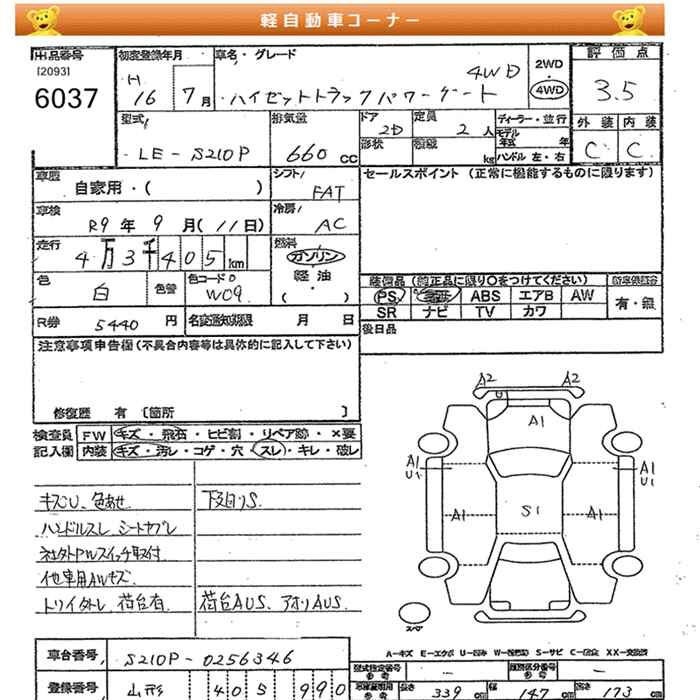 軽自動車コーナー
出品番号
[2093]
6037
初度登録年月
H
16 7月
車名・グレード
4WD
ハイゼットトラックパワーゲート
2WD
4WD
評価点
3.5
外装 内装
C C
型式
LE-S210P
排気量
660 cc
ドア
2D
形状
定員
2人
kg
ディーラー・並行
モデル
年式 年
ハンドル 左・右
車歴
自家用・( )
シフト
FAT
セールスポイント (正常に機能するものに限ります)
車検
R9年9月(11日)
冷房
AC
走行
4万3千405km
燃料
ガソリン
軽油
( )
色
白
色替
色コードNo
W09
装備品 (純正品に限り○をつけてください)
PS ABS エアB AW
SR ナビ TV カワ
有・無
R券 5440 円
名変通知期限 月 日
後日品
注意事項申告欄(不具合内容等は具体的に記入して下さい)
修復歴 有 [箇所 ]
検査員
記入欄
FW キズ・飛石・ヒビ割・リペア跡・×要
内装 キズ・汚レ・コゲ・穴・スレ・キレ・破レ
キズU、色あせ
下廻りS.
ハンドルスレ シートヤブレ
社外PWスイッチ取付
他車用AWキズ
トリイタレ 荷台有
荷台AUS、アオリAUS.
A2 A2
U
A1
A1
U1
A1
U1
A1 S1 A1
スペア
A-キズ E-エクボ U-凹み W-(補修跡) S-サビ C-腐食 XX-交換済
車台番号 S210P-0256346
登録番号 山形 405 990
型式指定番号
参考
類別区分番号
参考
長さ 339 cm 幅 147 cm 高さ 173 cm